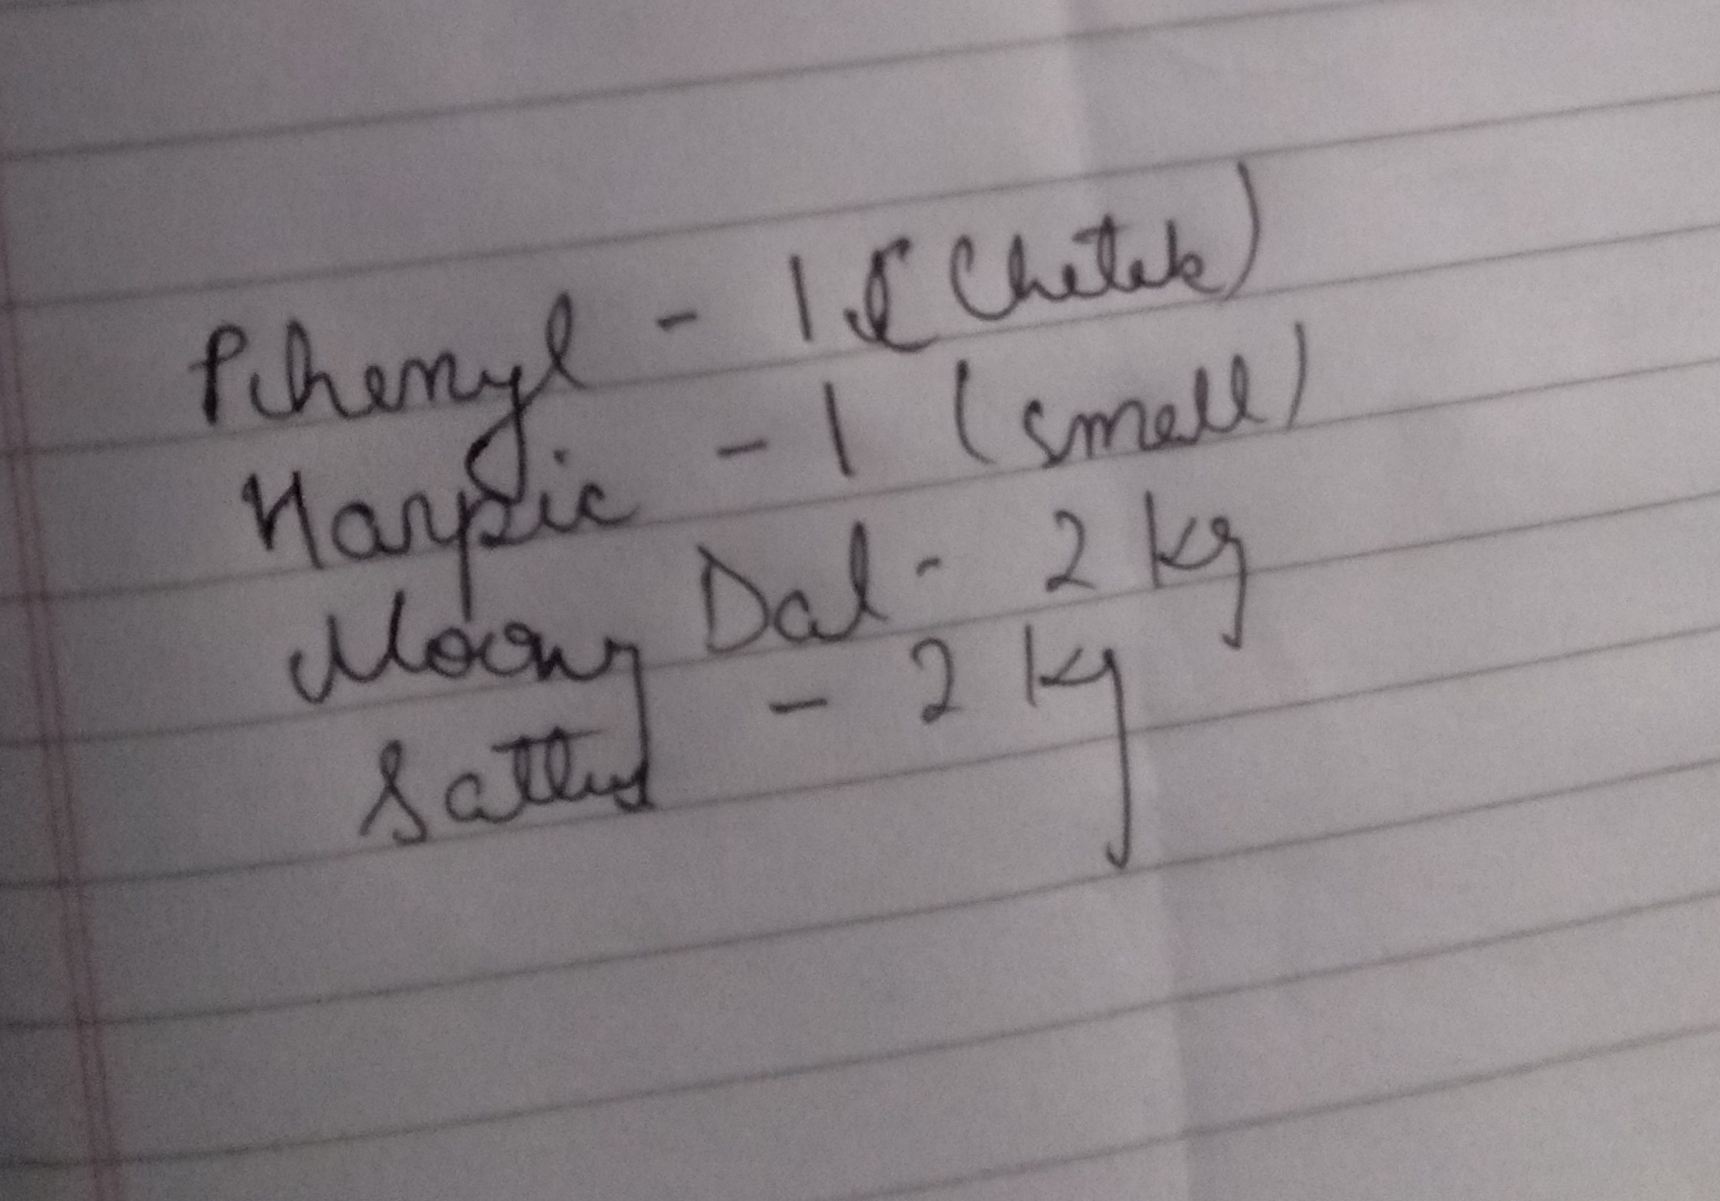 Phenyl - 1 (Chetak)
Harpic - 1 (small)
Moong Dal - 2 kg
Sattu - 2 kg